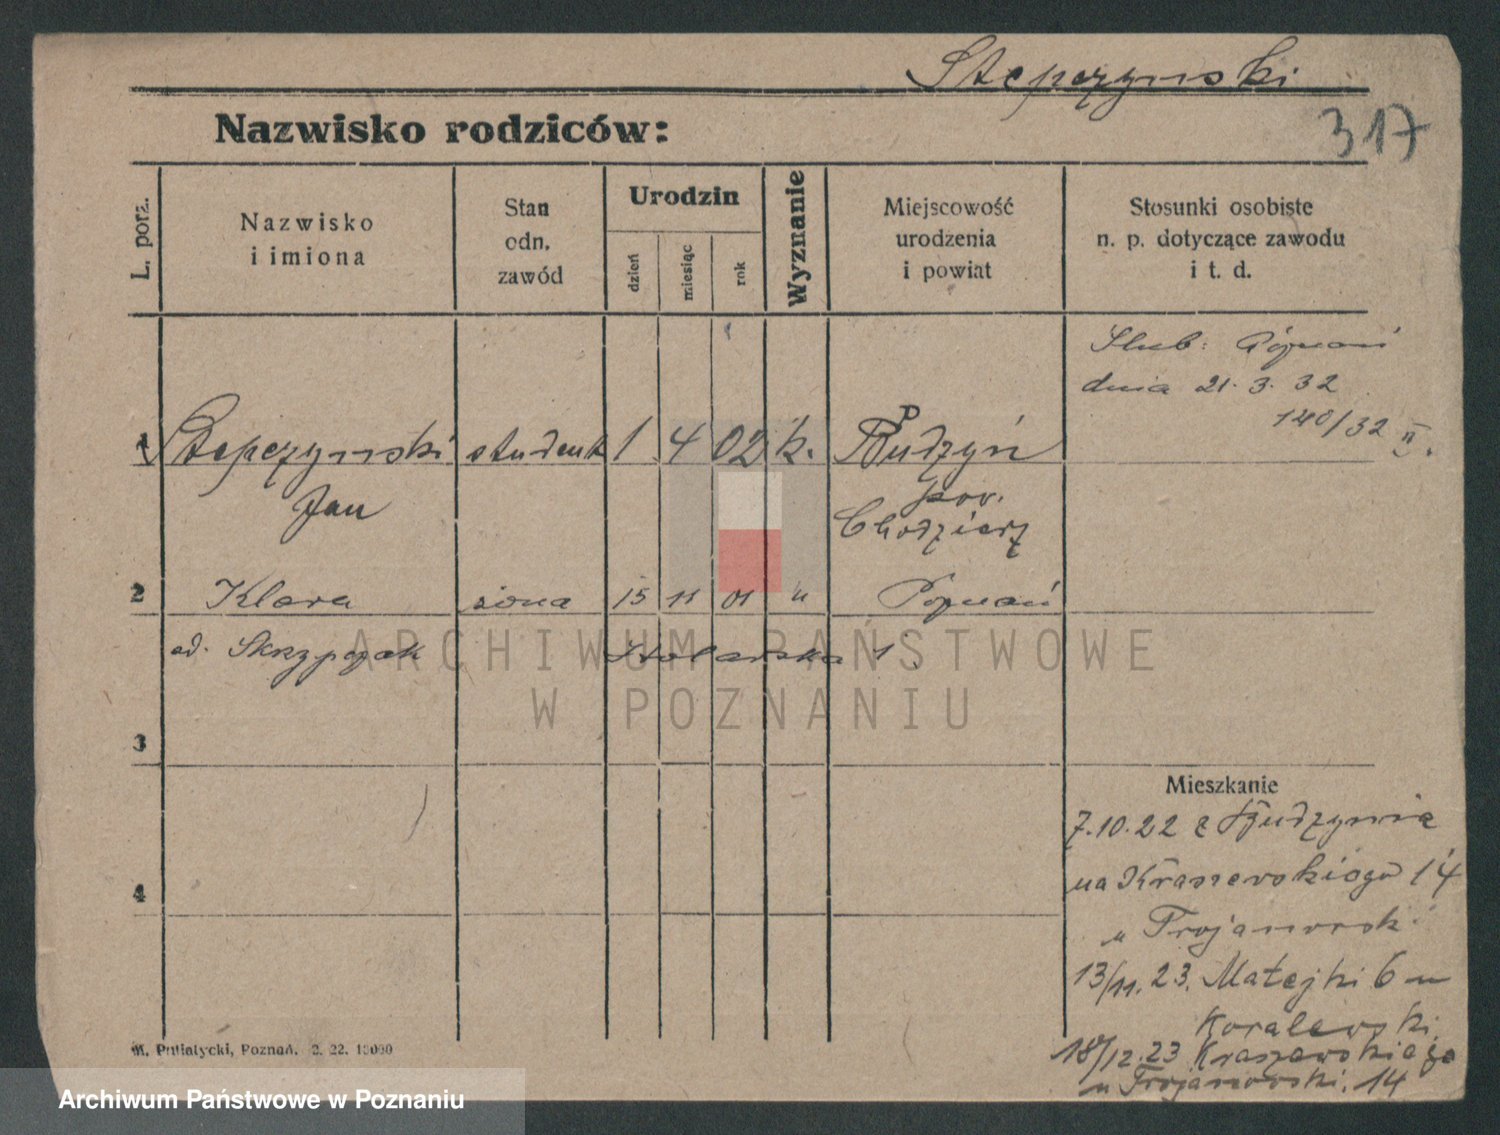 Stepczynski
Nazwisko rodziców:
317
L. porz.
Nazwisko
i imiona
Stan
odn.
zawód
Urodzin
dzień
miesiąc
rok
Wyznanie
Miejscowość
urodzenia
i powiat
Stosunki osobiste
n. p. dotyczące zawodu
i t. d.
Ślub: Poznań
dnia 21. 3. 32
140/32 II.
1 Stepczynski student 1 4 02 k. Budzyń
Jan
pow.
Chodzież
2 Klara żona 15 11 01 " Poznań
od. Skrzypczak Stolarska 1.
ARCHIWUM PAŃSTWOWE
W POZNANIU
3
Mieszkanie
7.10.22 z Budzynia
na Kraszewskiego 14
u Trojanowsk
4
13/11.23. Matejki 6 u
Koralewski
18/12.23 Kraszewskiego
u Trojanowski. 14
M. Putiatycki, Poznań. 2. 22. 10000
Archiwum Państwowe w Poznaniu